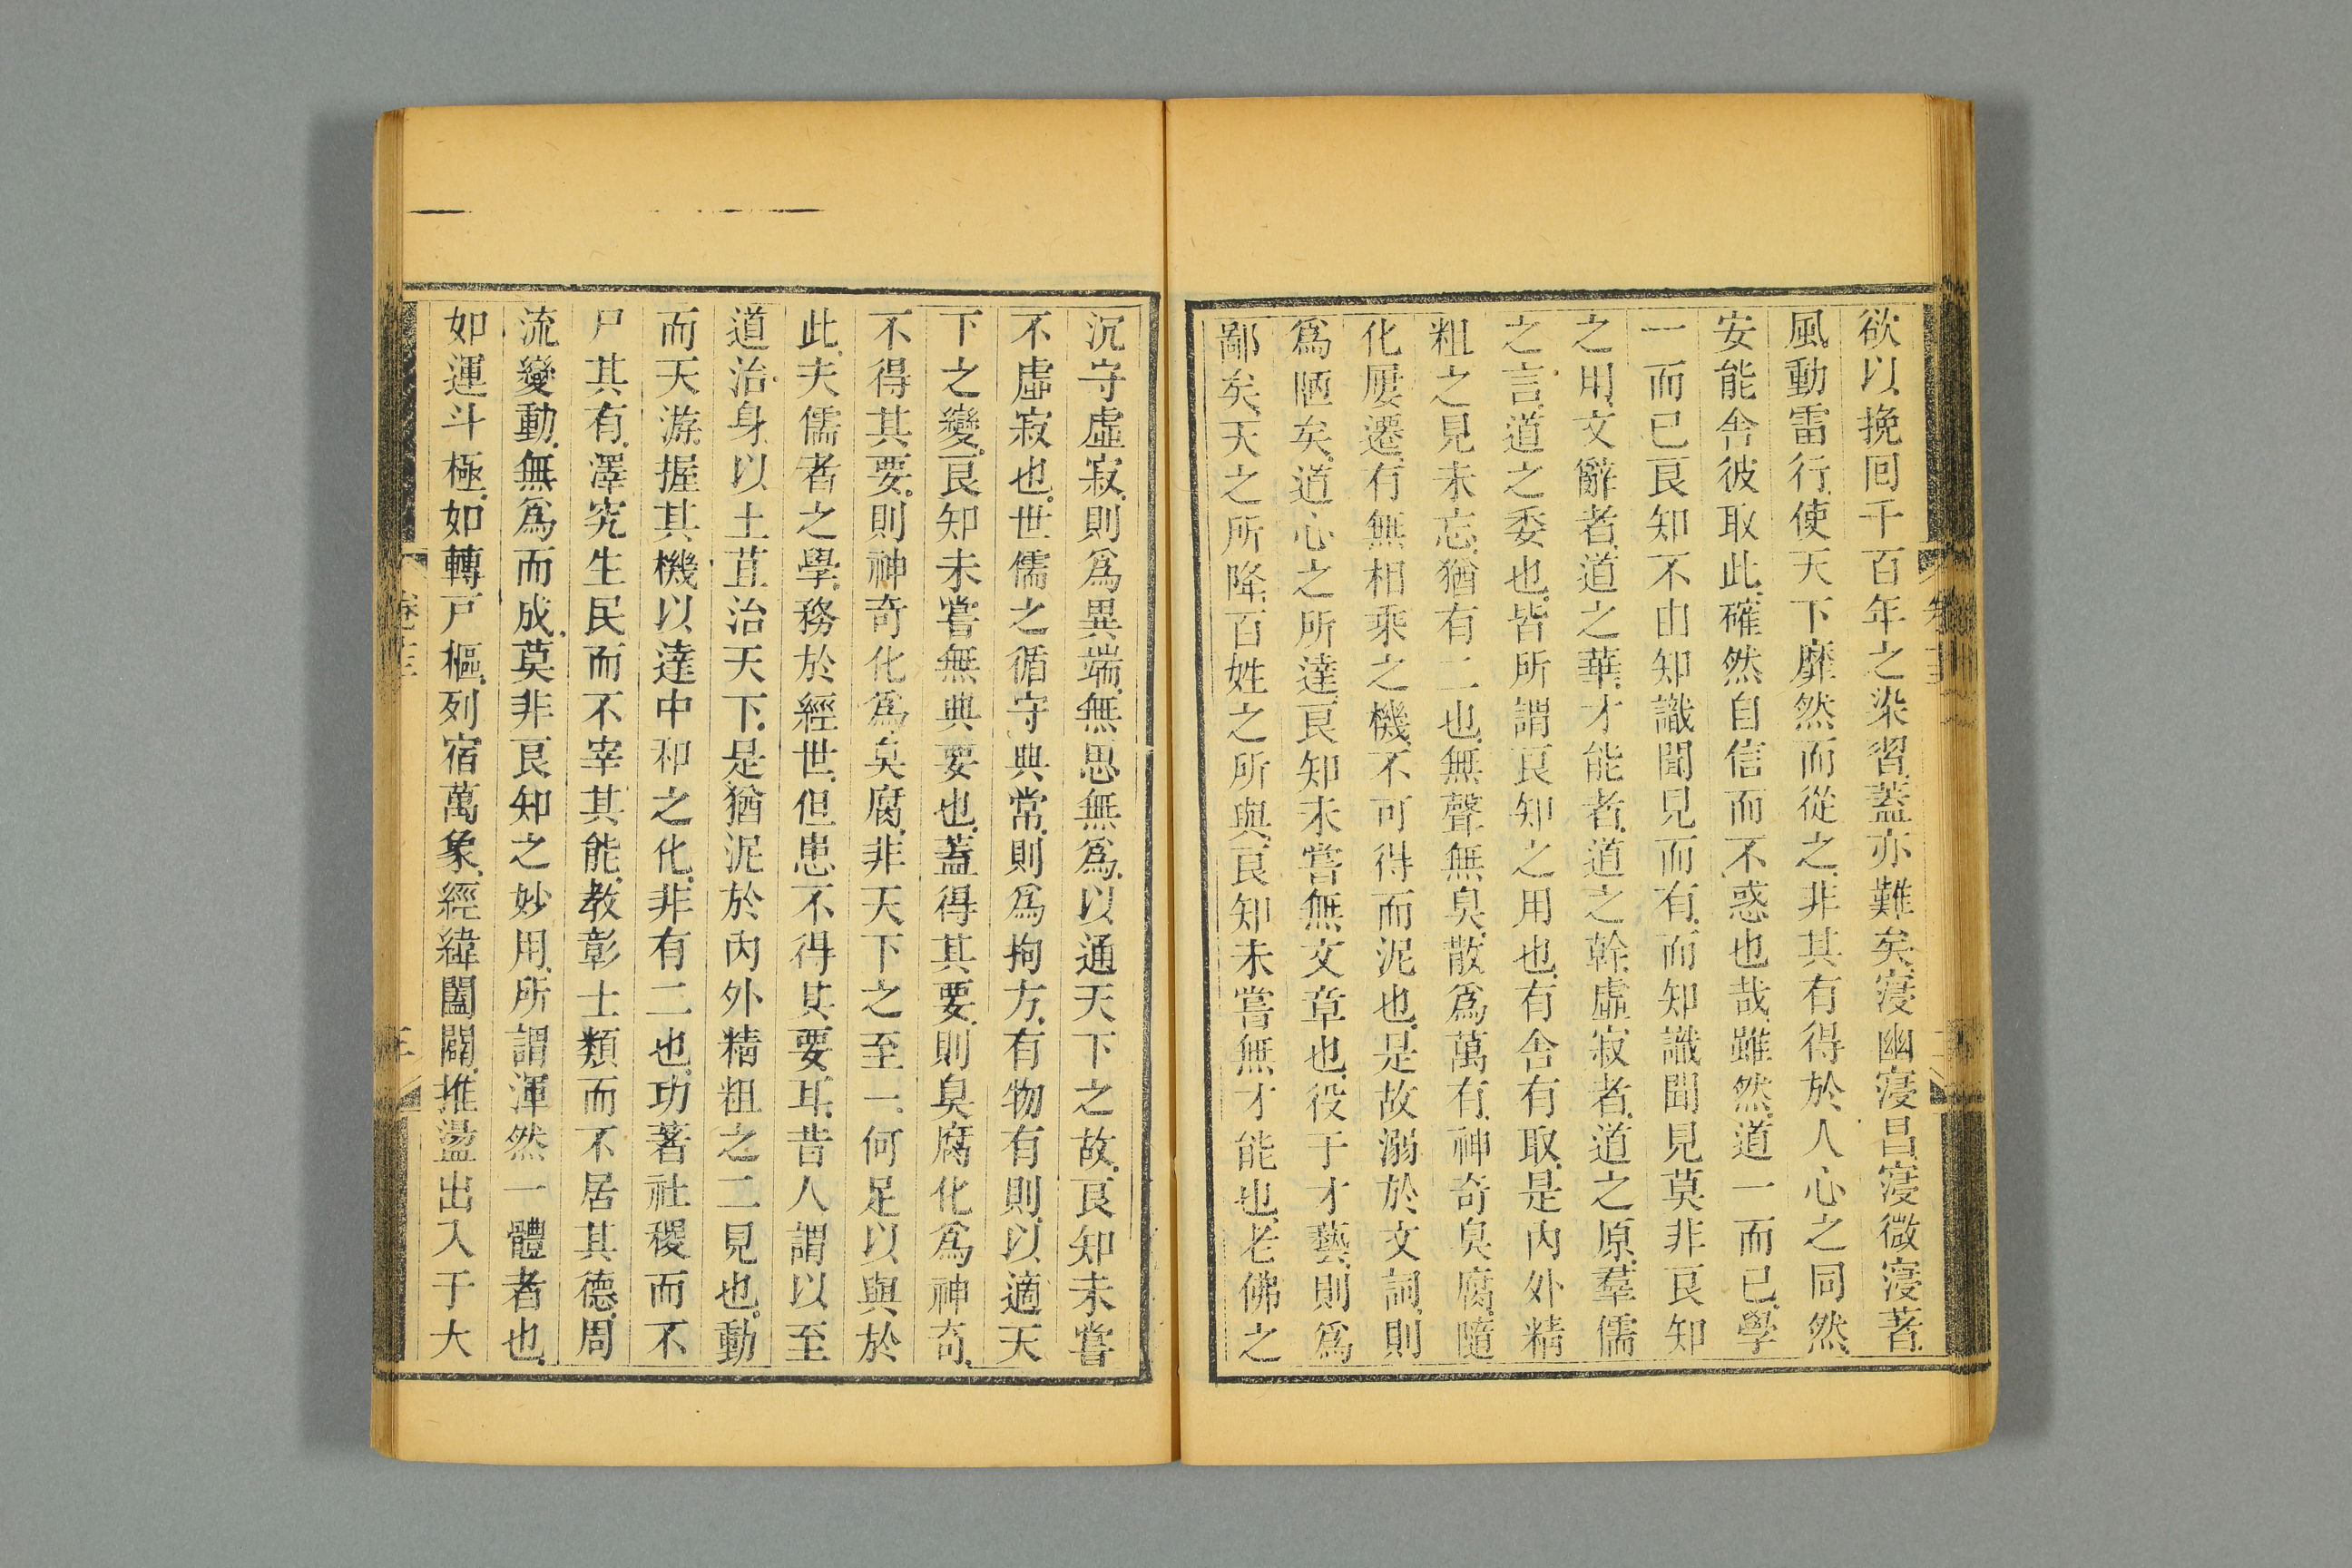 欲以挽回千百年之染習蓋亦難矣寖幽寖昌寖微寖著
風動雷行使天下靡然而從之非其有得於人心之同然
安能舍彼取此確然自信而不惑也哉雖然道一而已學
一而已良知不由知識聞見而有而知識聞見莫非良知
之用文辭者道之華才能者道之幹虛寂者道之原羣儒
之言道之委也皆所謂良知之用也有舍有取是內外精
粗之見未忘猶有二也無聲無臭散爲萬有神奇臭腐隨
化屢遷有無相乘之機不可得而泥也是故溺於文詞則
爲陋矣道心之所達良知未嘗無文章也役于才藝則爲
鄙矣天之所降百姓之所與良知未嘗無才能也老佛之
沉守虛寂則爲異端無思無爲以通天下之故良知未嘗
不虛寂也世儒之循守典常則爲拘方有物有則以適天
下之變良知未嘗無典要也蓋得其要則臭腐化爲神奇
不得其要則神奇化爲臭腐非天下之至一何足以與於
此夫儒者之學務於經世但患不得其要耳昔人謂以至
道治身以土苴治天下是猶泥於內外精粗之二見也動
而天游握其機以達中和之化非有二也功著社稷而不
尸其有澤究生民而不宰其能教彰士類而不居其德周
流變動無爲而成莫非良知之妙用所謂渾然一體者也
如運斗極如轉戸樞列宿萬象經緯闔闢推盪出入于大